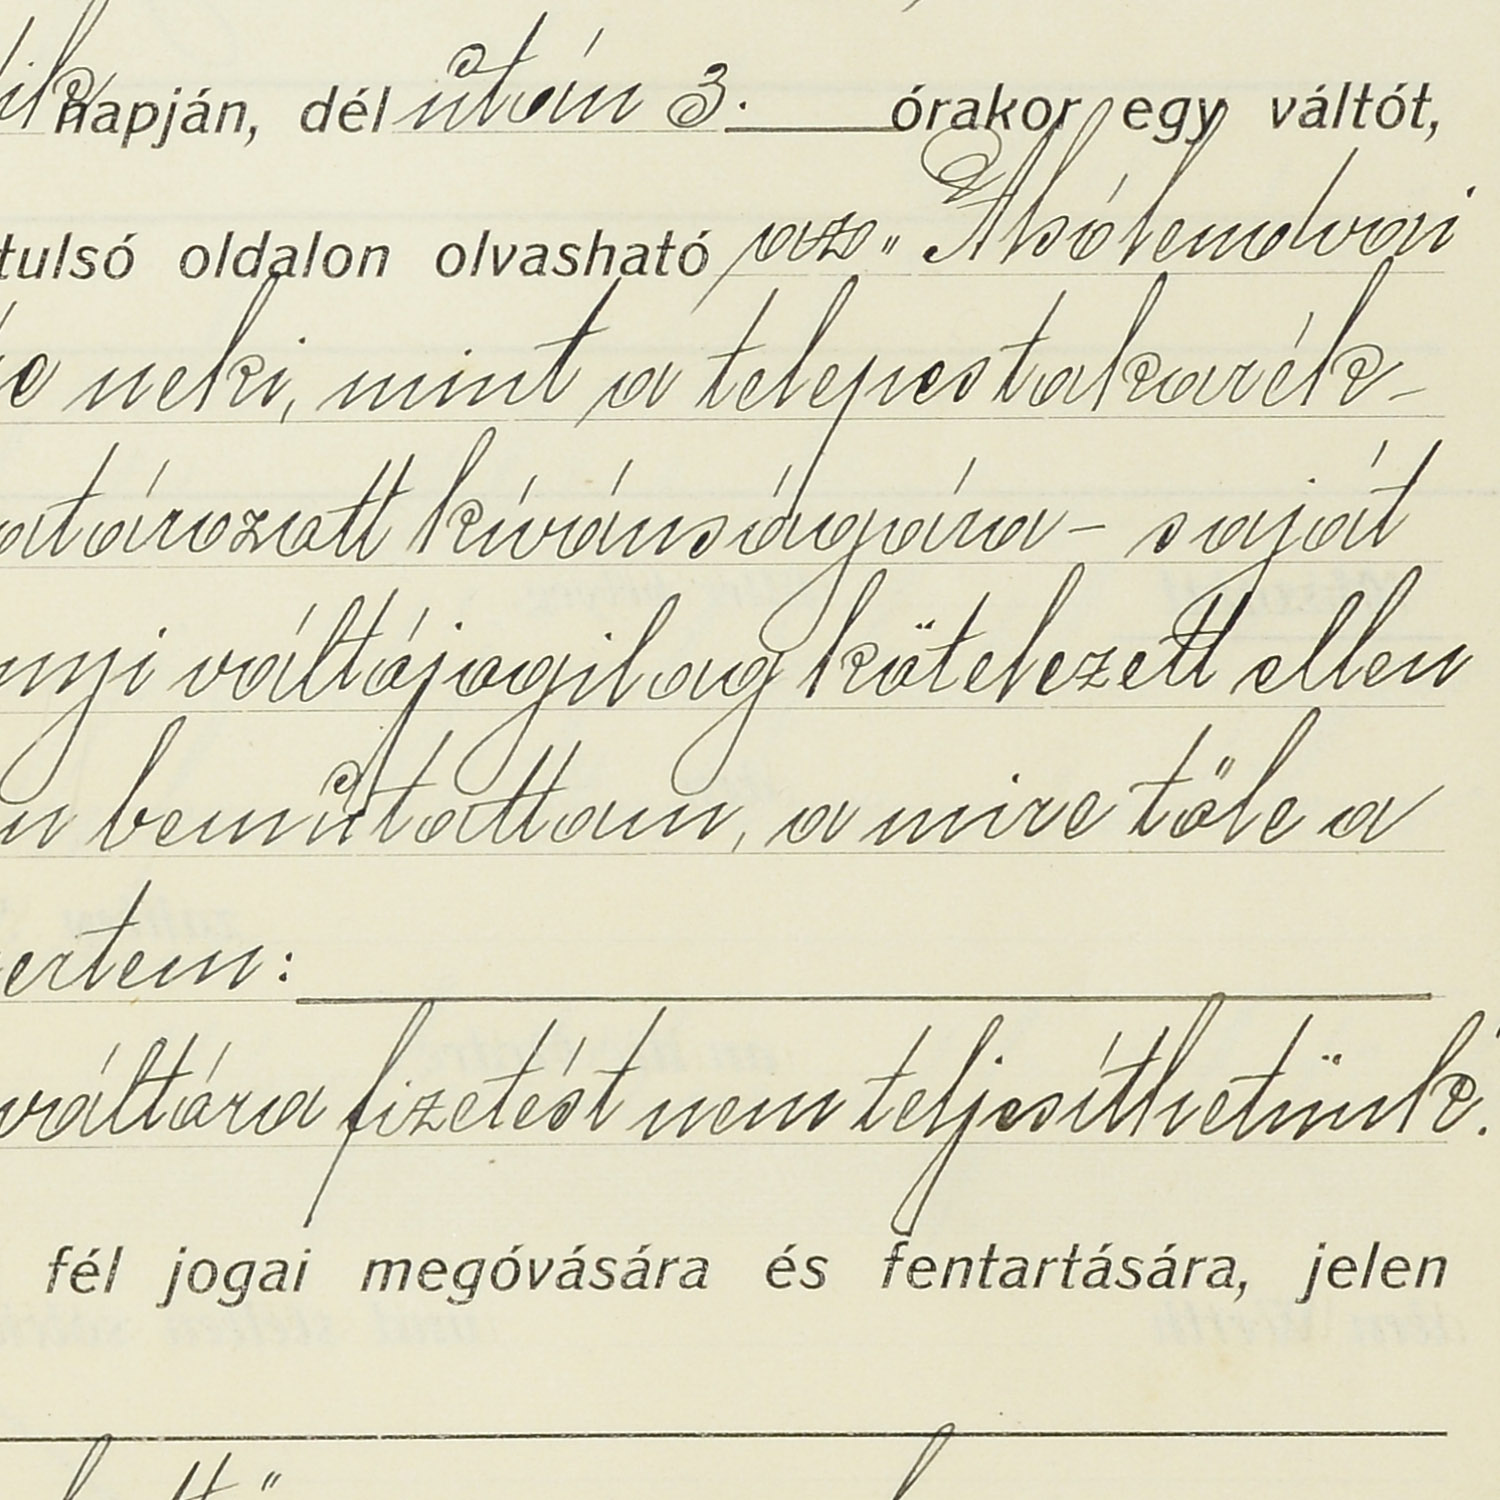 dik napján, dél után 3. órakor egy váltót,
tulsó oldalon olvasható az „Alsólendvai
neki, mint a telepestakarék-
atározott kívánságára – saját
nyi váltójogilag kötelezett ellen
bemutattam, a mire tőle a
ertem:
váltóra fizetést nem teljesíthetünk.
fél jogai megóvására és fentartására, jelen